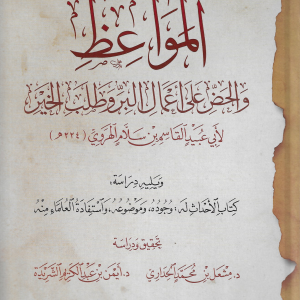 المَوَاعِظِ
وَالحَضِّ عَلَى أَعْمَالِ البِرِّ وَطَلَبِ الخَيْرِ
لأَبِي عُبَيْدٍ القَاسِمِ بْنِ سَلَّامٍ الهَرَوِيِّ (٢٢٤هـ)
وَيَلِيهِ دِرَاسَة:
كِتَابُ الأَحْدَاثِ لَهُ: وُجُودُهُ، وَمَوْضُوعُهُ، وَاسْتِفَادَةُ العُلَمَاءِ مِنْهُ
تَحْقِيق وَدِرَاسَة
د. مشعل بن محمد الحداري د. أيمن بن عبد الكريم الشريدة